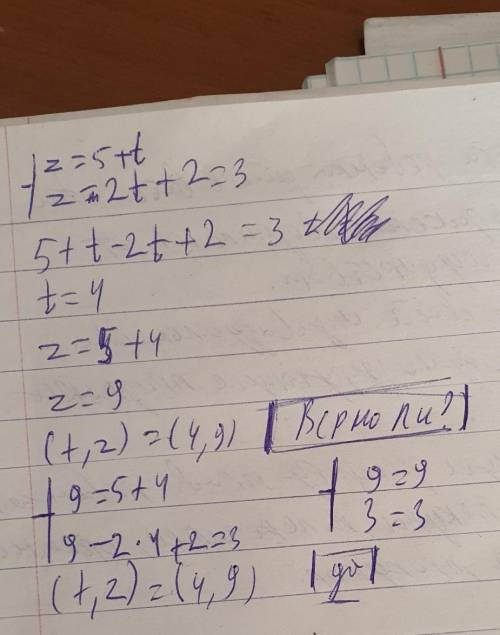 z=5+t
z-2t+2=3
5+t-2t+2=3
t=4
z=5+4
z=9
(t,z)=(4,9) Верно ли?
9=5+4
9-2·4+2=3
9=9
3=3
(t,z)=(4,9) да